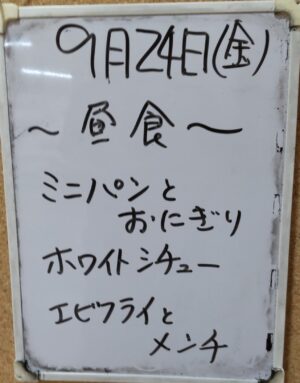 9月24日(金)
～昼食～
ミニパンと
おにぎり
ホワイトシチュー
エビフライと
メンチ